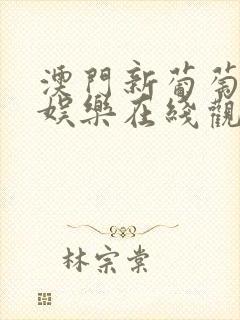 澳門新葡萄
娛樂在綫觀
林宗棠